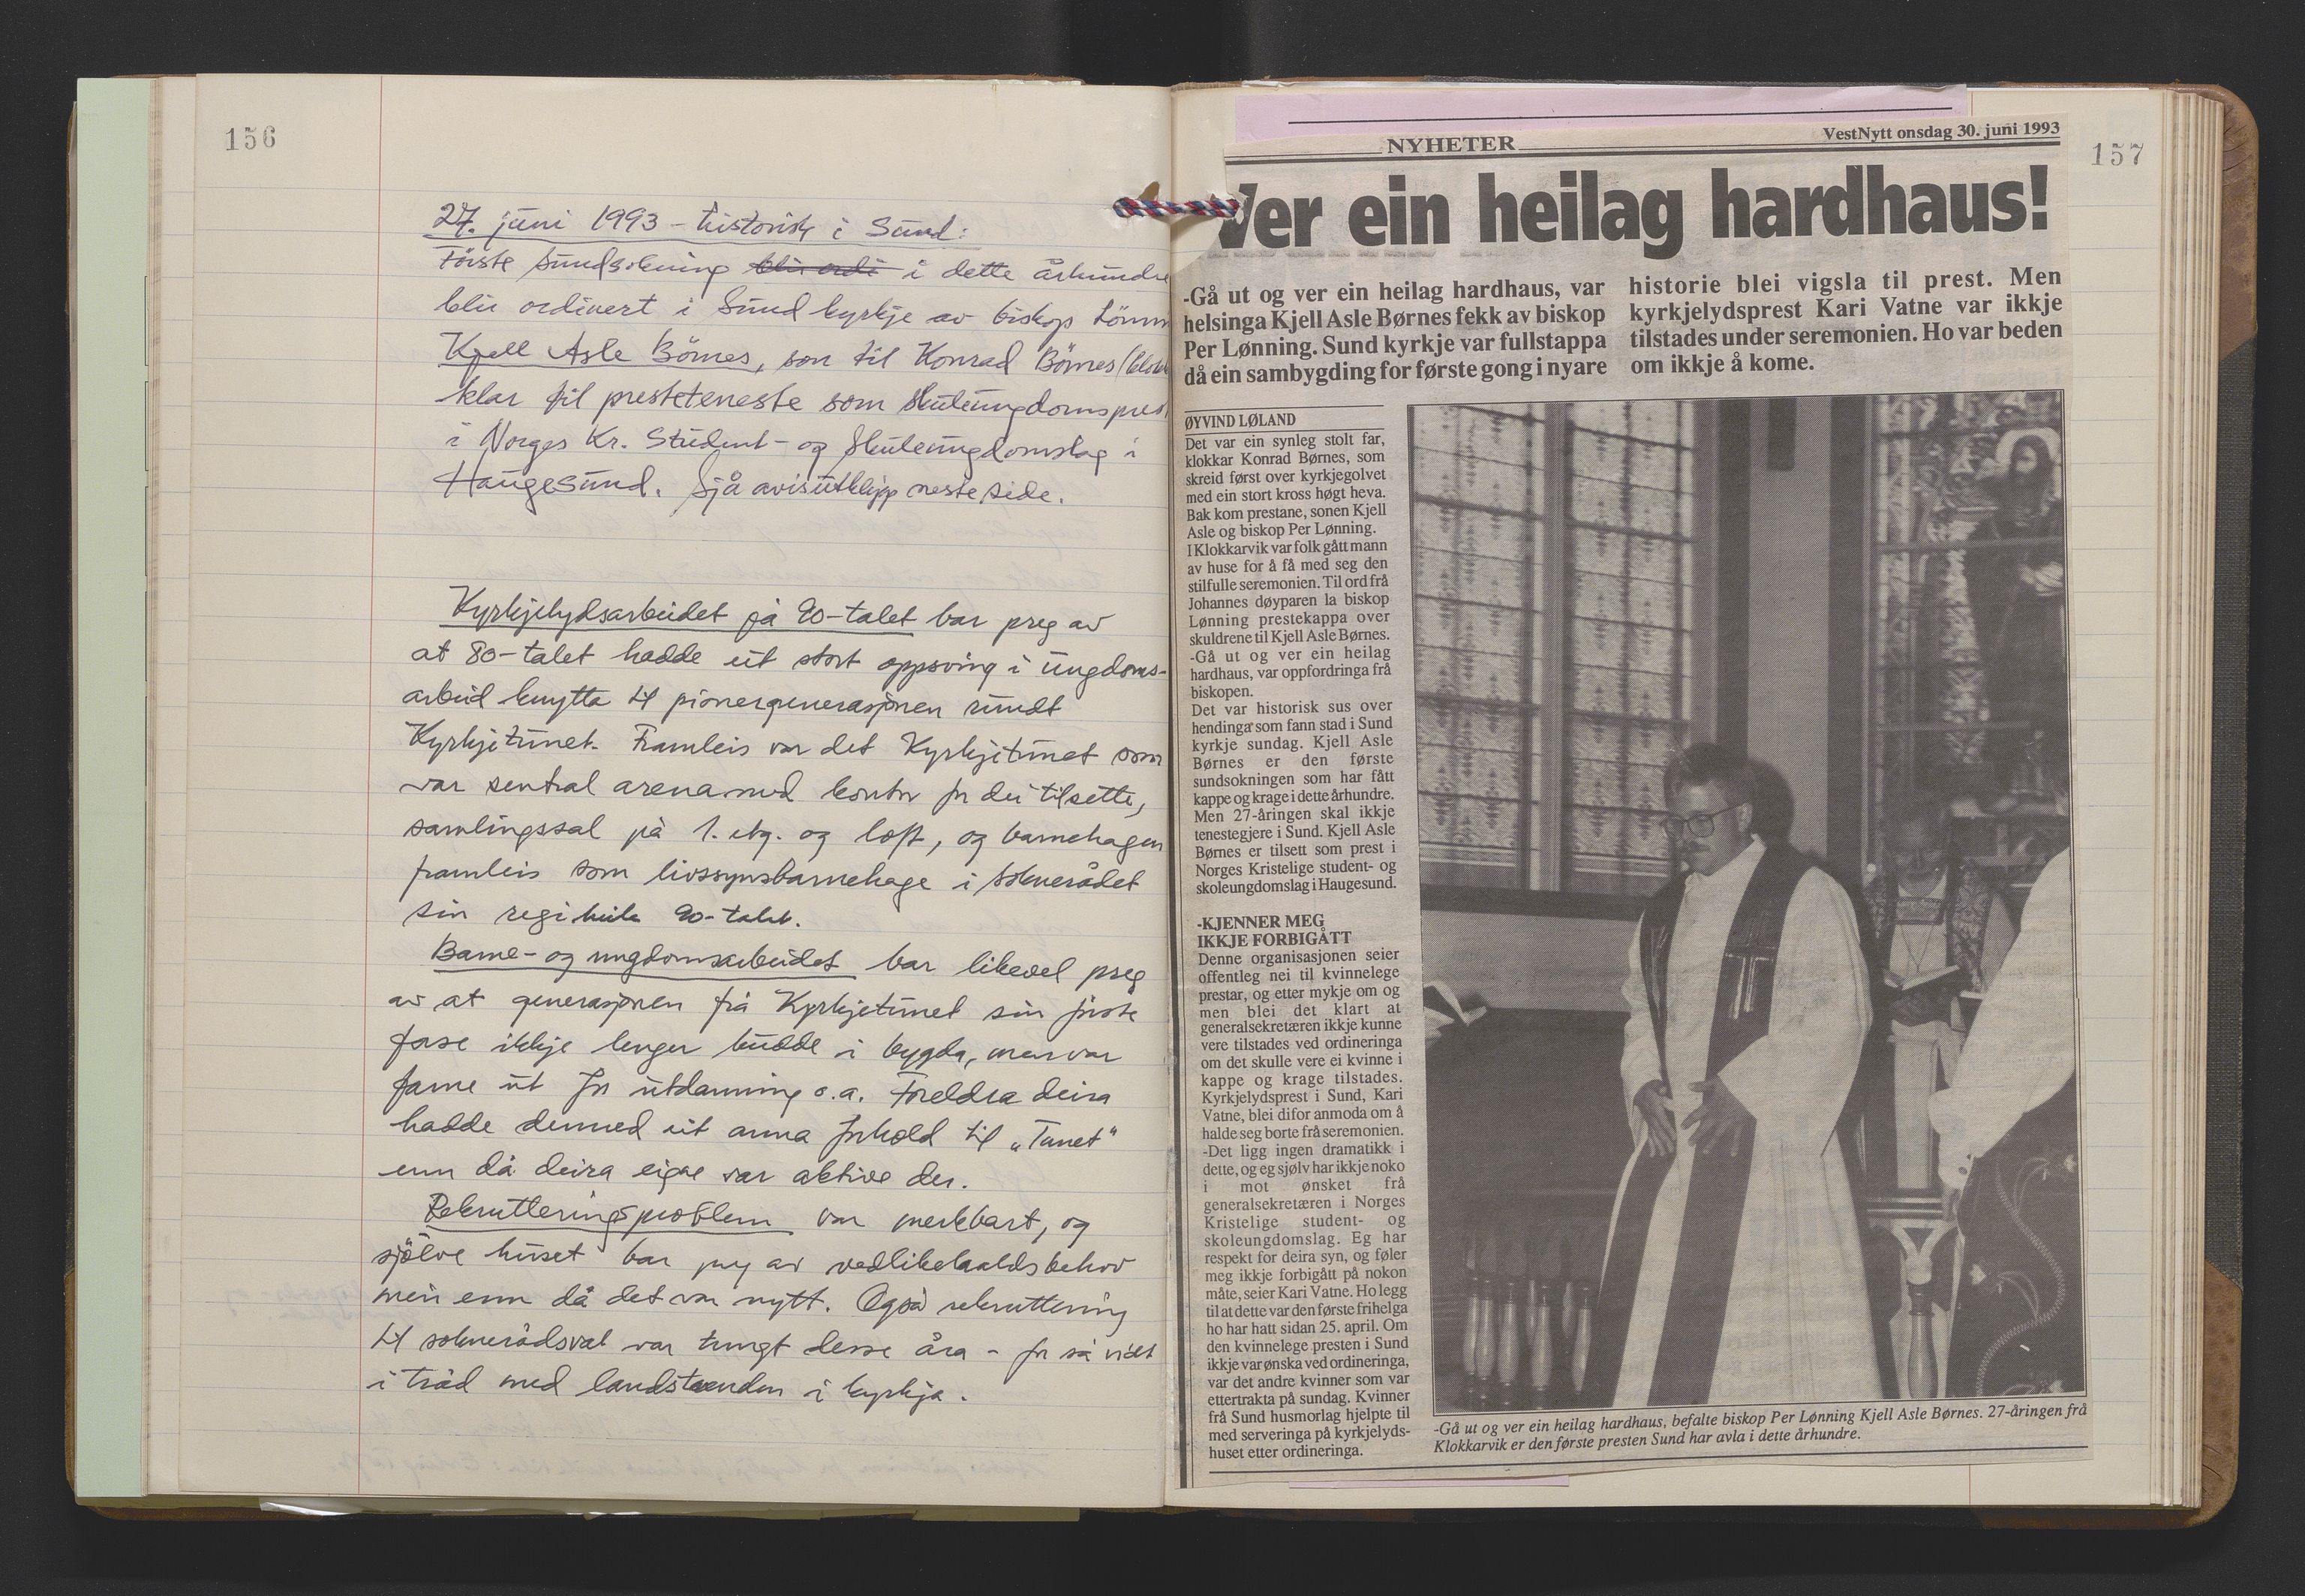 156
27. juni 1993 - historisk i Sund:
Første sundsokning blir ordi i dette århundre
blir ordinert i Sund kyrkje av biskop Lønn
Kjell Asle Börnes, son til Konrad Börnes (klokk
klar til presteteneste som skuleungdomsprest
i Norges Kr. Student- og Skuleungdomslag i
Haugesund. Sjå avisutklipp neste side.
Kyrkjelydsarbeidet på 90-talet bar preg av
at 80-talet hadde eit stort oppsving i ungdoms-
arbeid knytta til pionergenerasjonen rundt
Kyrkjetunet. Framleis var det Kyrkjetunet som
var sentral arena med kontor for dei tilsette,
samlingssal på 1. etg. og loft, og barnehagen
framleis som livssynsbarnehage i soknerådet
sin regi heile 90-talet.
Barne- og ungdomsarbeidet bar likevel preg
av at generasjonen frå Kyrkjetunet sin første
fase ikkje lenger budde i bygda, men var
farne ut for utdanning o.a. Foreldra deira
hadde dermed eit anna forhold til „Tunet"
enn då deira eigne var aktive der.
Rekrutteringsproblem var merkbart, og
sjölve huset bar preg av vedlikehaldsbehov
meir enn då det var nytt. Også rekruttering
til soknerådsval var tungt desse åra - for så vidt
i tråd med landstrenden i kyrkja.
NYHETER
VestNytt onsdag 30. juni 1993
157
Ver ein heilag hardhaus!
-Gå ut og ver ein heilag hardhaus, var
helsinga Kjell Asle Børnes fekk av biskop
Per Lønning. Sund kyrkje var fullstappa
då ein sambygding for første gong i nyare
historie blei vigsla til prest. Men
kyrkjelydsprest Kari Vatne var ikkje
tilstades under seremonien. Ho var beden
om ikkje å kome.
ØYVIND LØLAND
Det var ein synleg stolt far,
klokkar Konrad Børnes, som
skreid først over kyrkjegolvet
med ein stort kross høgt heva.
Bak kom prestane, sonen Kjell
Asle og biskop Per Lønning.
I Klokkarvik var folk gått mann
av huse for å få med seg den
stilfulle seremonien. Til ord frå
Johannes døyparen la biskop
Lønning prestekappa over
skuldrene til Kjell Asle Børnes.
-Gå ut og ver ein heilag
hardhaus, var oppfordringa frå
biskopen.
Det var historisk sus over
hendinga som fann stad i Sund
kyrkje sundag. Kjell Asle
Børnes er den første
sundsokningen som har fått
kappe og krage i dette århundre.
Men 27-åringen skal ikkje
tenestegjere i Sund. Kjell Asle
Børnes er tilsett som prest i
Norges Kristelige student- og
skoleungdomslag i Haugesund.
-KJENNER MEG
IKKJE FORBIGÅTT
Denne organisasjonen seier
offentleg nei til kvinnelege
prestar, og etter mykje om og
men blei det klart at
generalsekretæren ikkje kunne
vere tilstades ved ordineringa
om det skulle vere ei kvinne i
kappe og krage tilstades.
Kyrkjelydsprest i Sund, Kari
Vatne, blei difor anmoda om å
halde seg borte frå seremonien.
-Det ligg ingen dramatikk i
dette, og eg sjølv har ikkje noko
i mot ønsket frå
generalsekretæren i Norges
Kristelige student- og
skoleungdomslag. Eg har
respekt for deira syn, og føler
meg ikkje forbigått på nokon
måte, seier Kari Vatne. Ho legg
til at dette var den første frihelga
ho har hatt sidan 25. april. Om
den kvinnelege presten i Sund
ikkje var ønska ved ordineringa,
var det andre kvinner som var
ettertrakta på sundag. Kvinner
frå Sund husmorlag hjelpte til
med serveringa på kyrkjelyds-
huset etter ordineringa.
-Gå ut og ver ein heilag hardhaus, befalte biskop Per Lønning Kjell Asle Børnes. 27-åringen frå
Klokkarvik er den første presten Sund har avla i dette århundre.